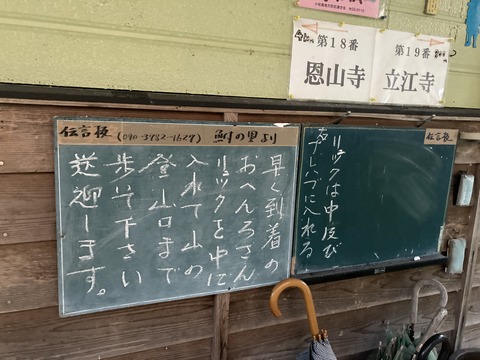 第18番
恩山寺
第19番
立江寺
伝言板 (090-3982-1629) 鮒の里より
早く到着の
おへんろさん
リックを中に
入れて山の
登山口まで
歩て下さい
送迎します。
伝言板
リックは中及び
右プレハブに入れる